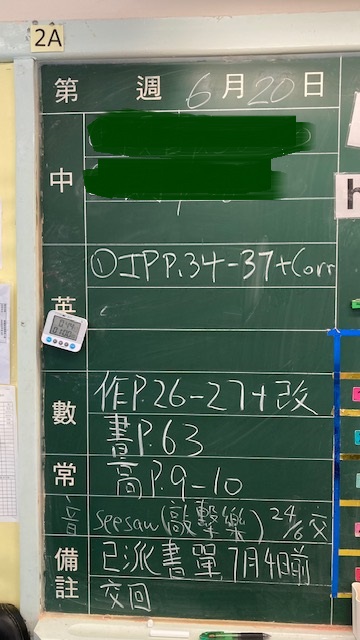 2A
第 週 6月20日
中
英 ①IPP.34-37+Corr
數 作P.26-27+改
書P.63
常 高P.9-10
音 seesaw(敲擊樂) 24/6交
備註 已派書單7月4日前
交回